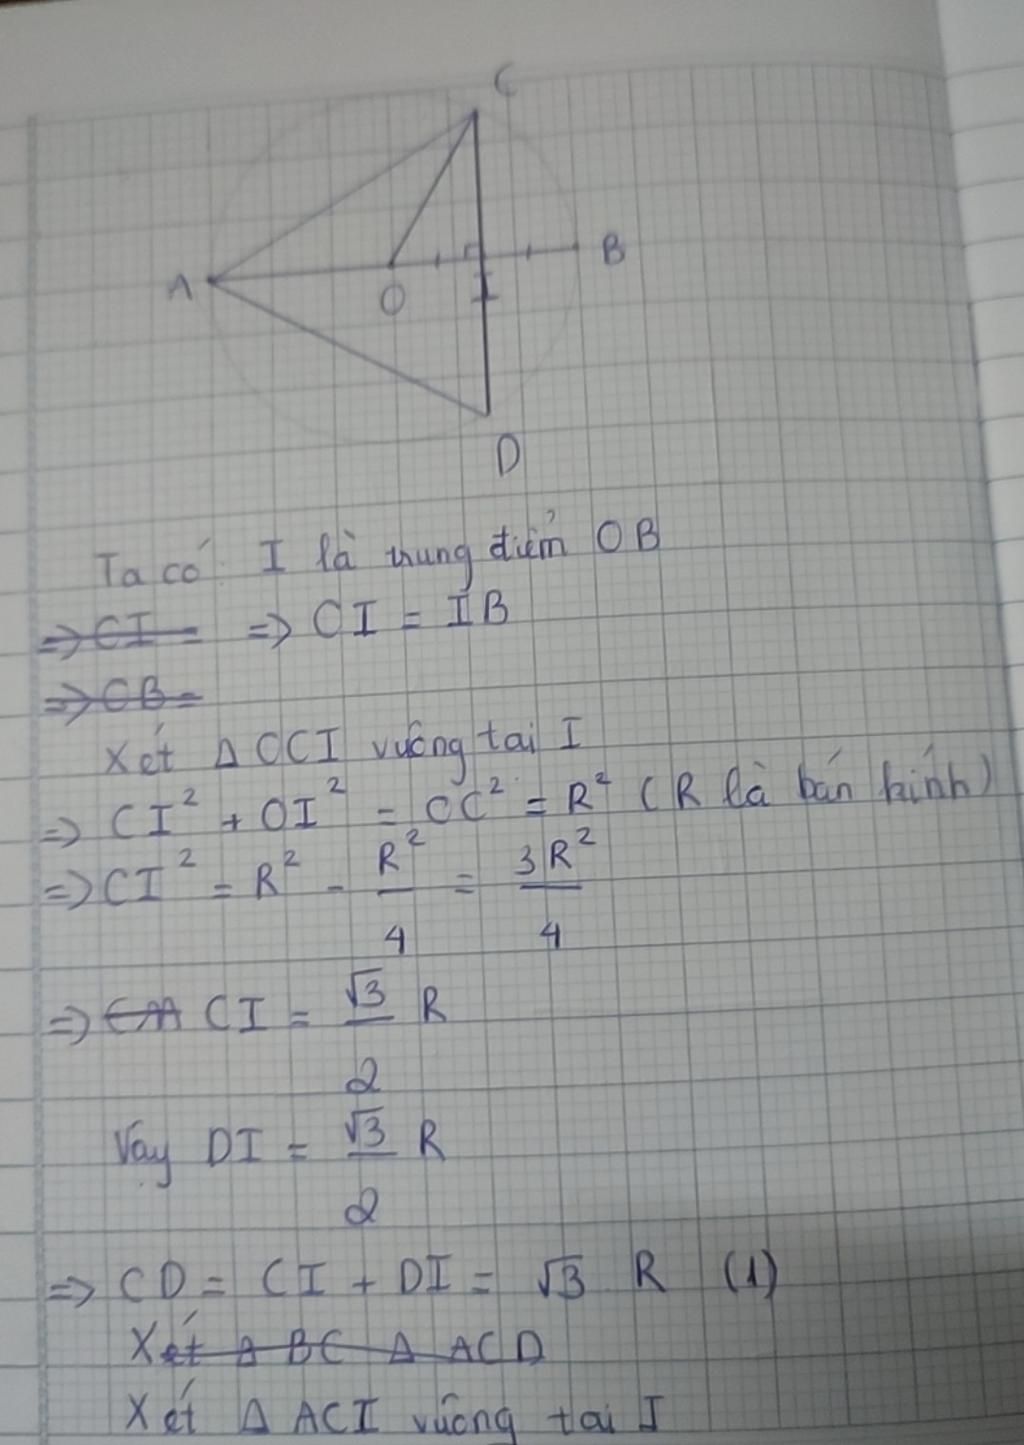 C
A
O
I
B
D
Ta có: I là trung điểm OB
=> CI = => CI = IB
=> CB =
Xét Δ OCI vuông tại I
=> CI² + OI² = OC² = R² (R là bán kính)
=> CI² = R² - R²/4 = 3R²/4
=> CI = √3/2 R
Vậy DI = √3/2 R
=> CD = CI + DI = √3 R (1)
Xét Δ BC Δ ACD
Xét Δ ACI vuông tại I